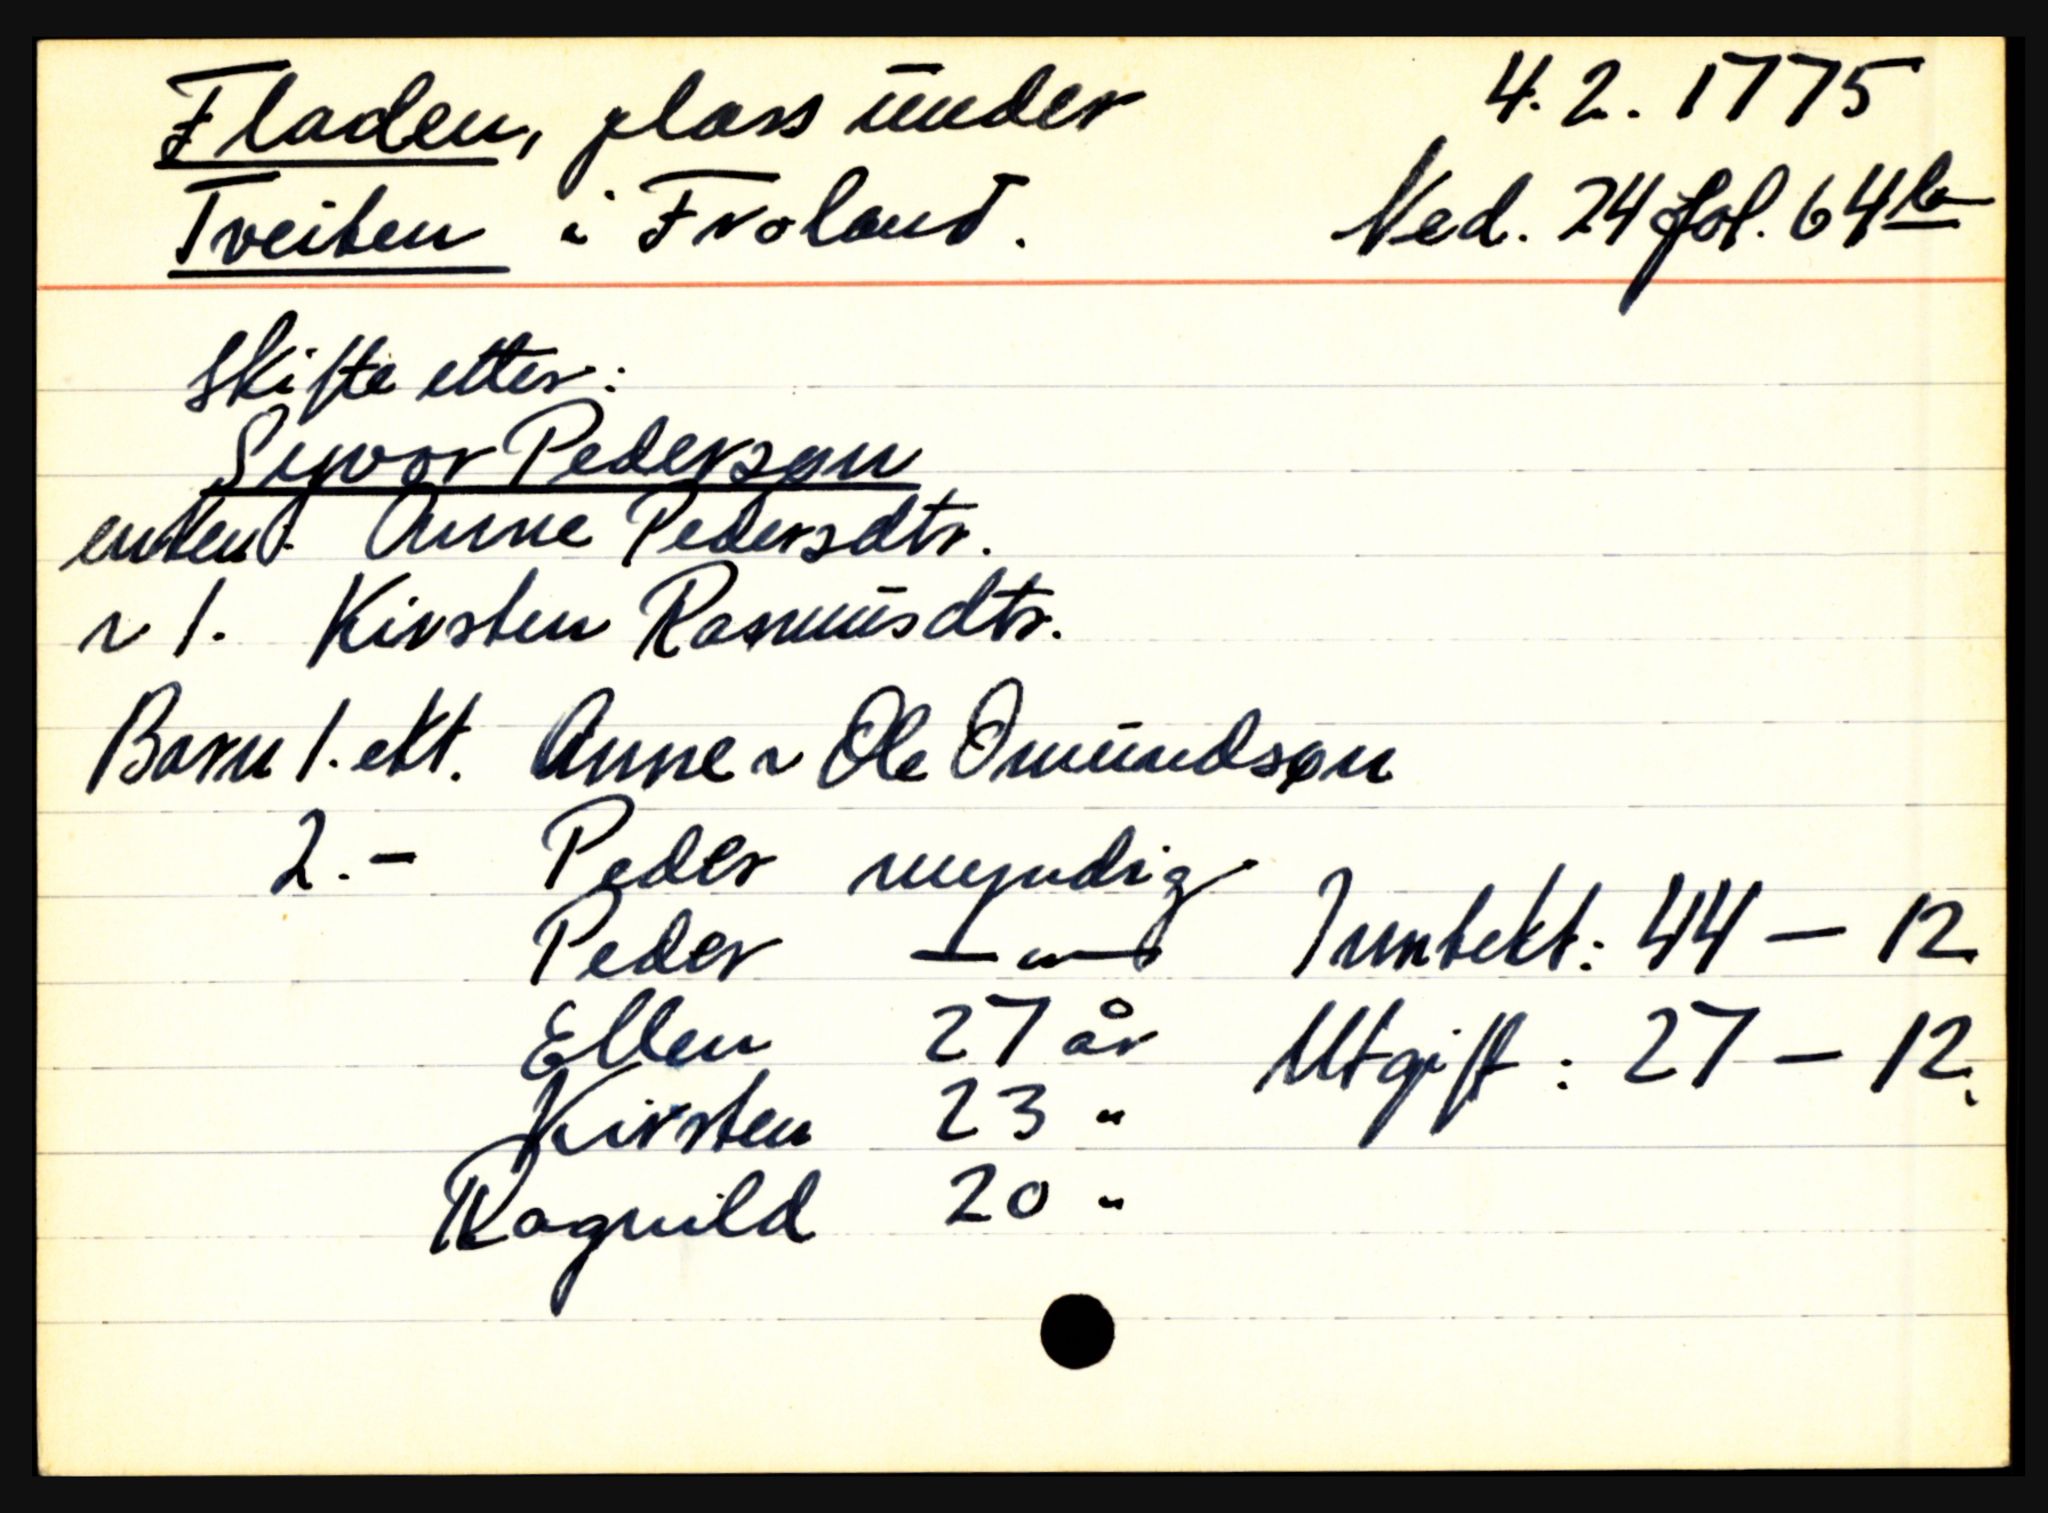 Fladen, plass under
Tveiten i Froland.
4.2.1775
Ned. 24 fol. 64 b
Skifte etter:
Syvor Pedersøn
enten Anne Pedersdtr.
~ 1. Kirsten Rasmusdtr.
Barn 1. ekt. Anne ~ Ole Omundsøn
2. - Peder myndig
Peder —"—
Innbekt: 44 — 12
Ellen 27 år
Utgift: 27 — 12.
Kirsten 23 "
Ragnild 20 "